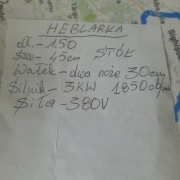 HEBLARKA
dł. - 1.50
Szer - 45cm STÓŁ
Wałek - dwa noże 30cm
Silnik - 3KW 1850 obr/
Siła - 380V